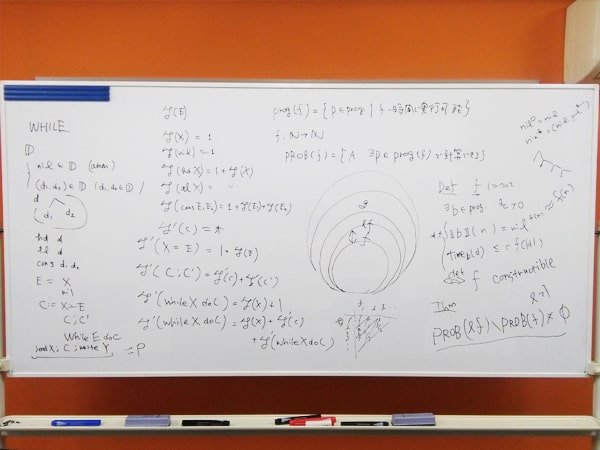 WHILE
D
nil ∈ D (atom)
(d₁.d₂) ∈ D (d₁,d₂ ∈ D)
d
d₁ d₂
hd d
tl d
cons d₁ d₂
E = X
nil
C := X := E
C ; C'
While E do C
read X; C ; write Y = P
𝒯(E)
𝒯(X) = 1
𝒯(nil) = 1
𝒯(hd X) = 1 + 𝒯(X)
𝒯(tl X) = 〃
𝒯(cons E₁ E₂) = 1 + 𝒯(E₁) + 𝒯(E₂)
𝒯'(C) = t
𝒯'(X := E) = 1 + 𝒯(E)
𝒯'(C ; C') = 𝒯'(C) + 𝒯'(C')
𝒯'(while X do C) = 𝒯(X) + 1
𝒯'(while X do C) = 𝒯(X) + 𝒯'(C)
+ 𝒯'(while X do C)
prog(f) = { P ∈ prog | f 時間で実行可能 }
f : N → N
PROB(f) = { A ∃p ∈ prog(f) で計算できる }
g
lf
f
Def f
∃b ∈ prog ∃c > 0
⟦b⟧(n) = nil
time b(d) ≤ c f(|d|)
def f constructible
Thm
PROB(lf) \ PROB(f) ≠ Φ